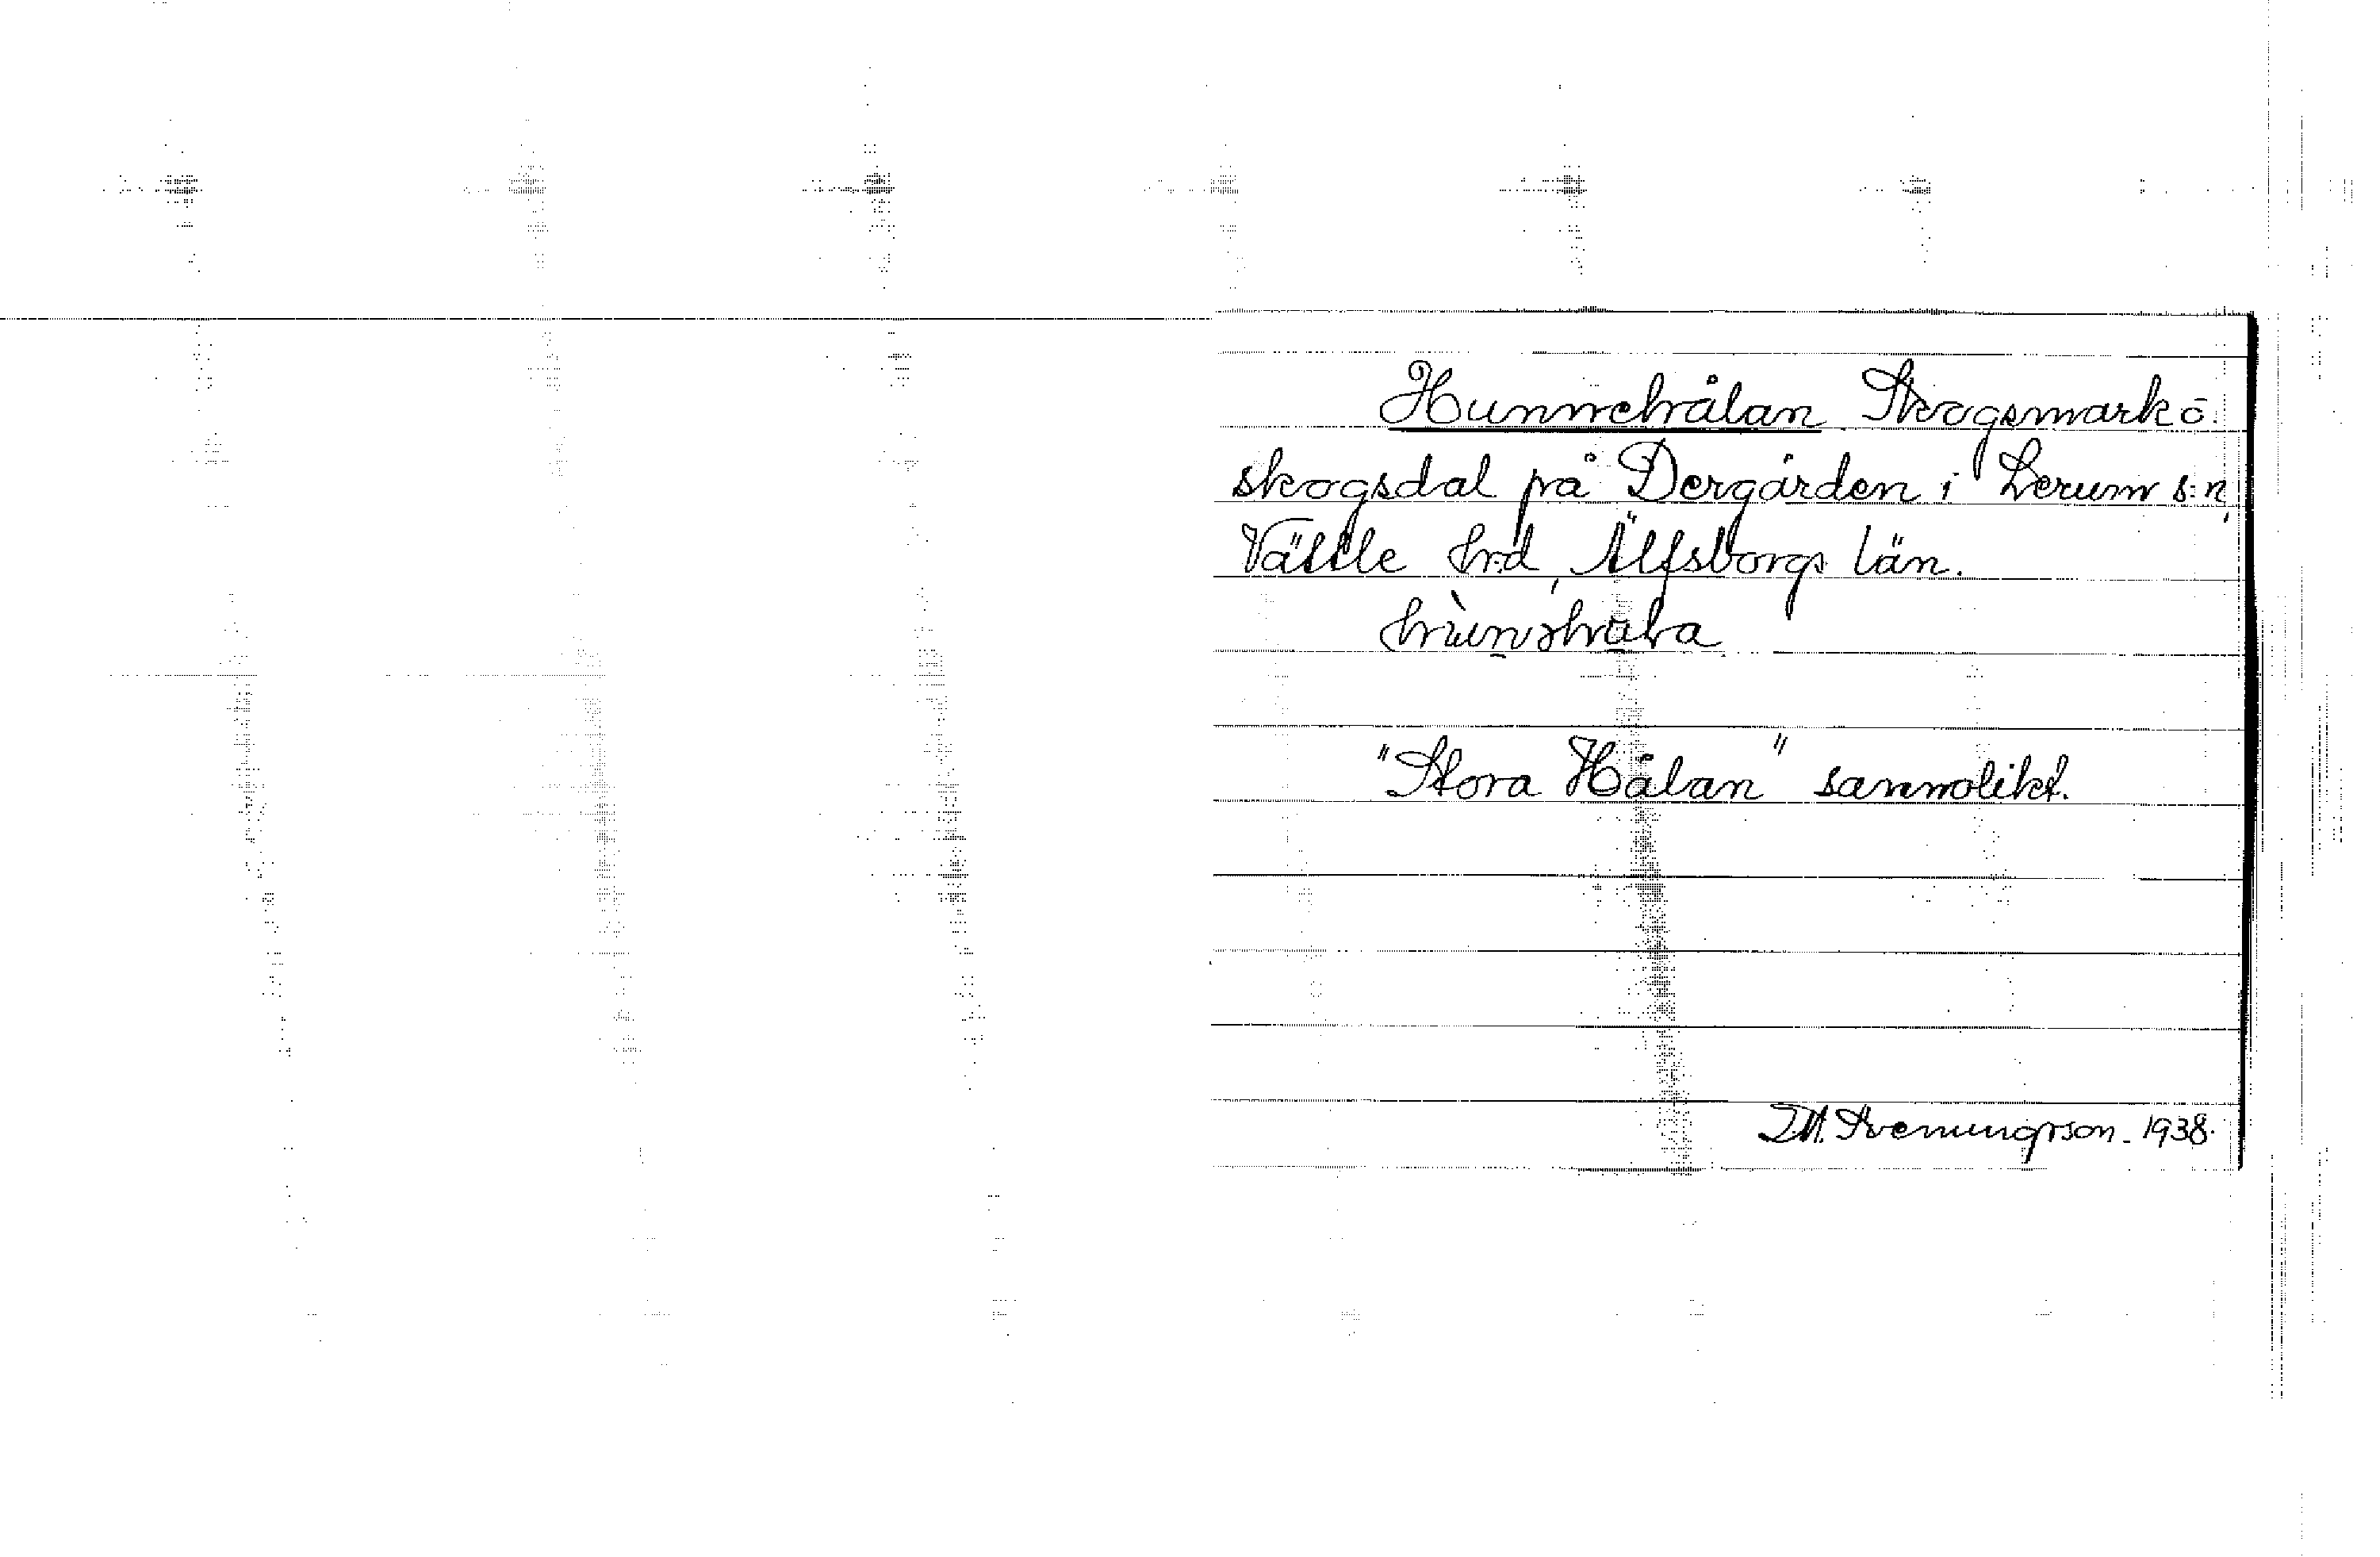 Hunnehålan Skogsmark o.
skogsdal på Dergården i Lerum s:n,
Vättle hrd, Älfsborgs län.
"Stora Hålan" sannolikt.
I.M. Svenungsson. 1938.